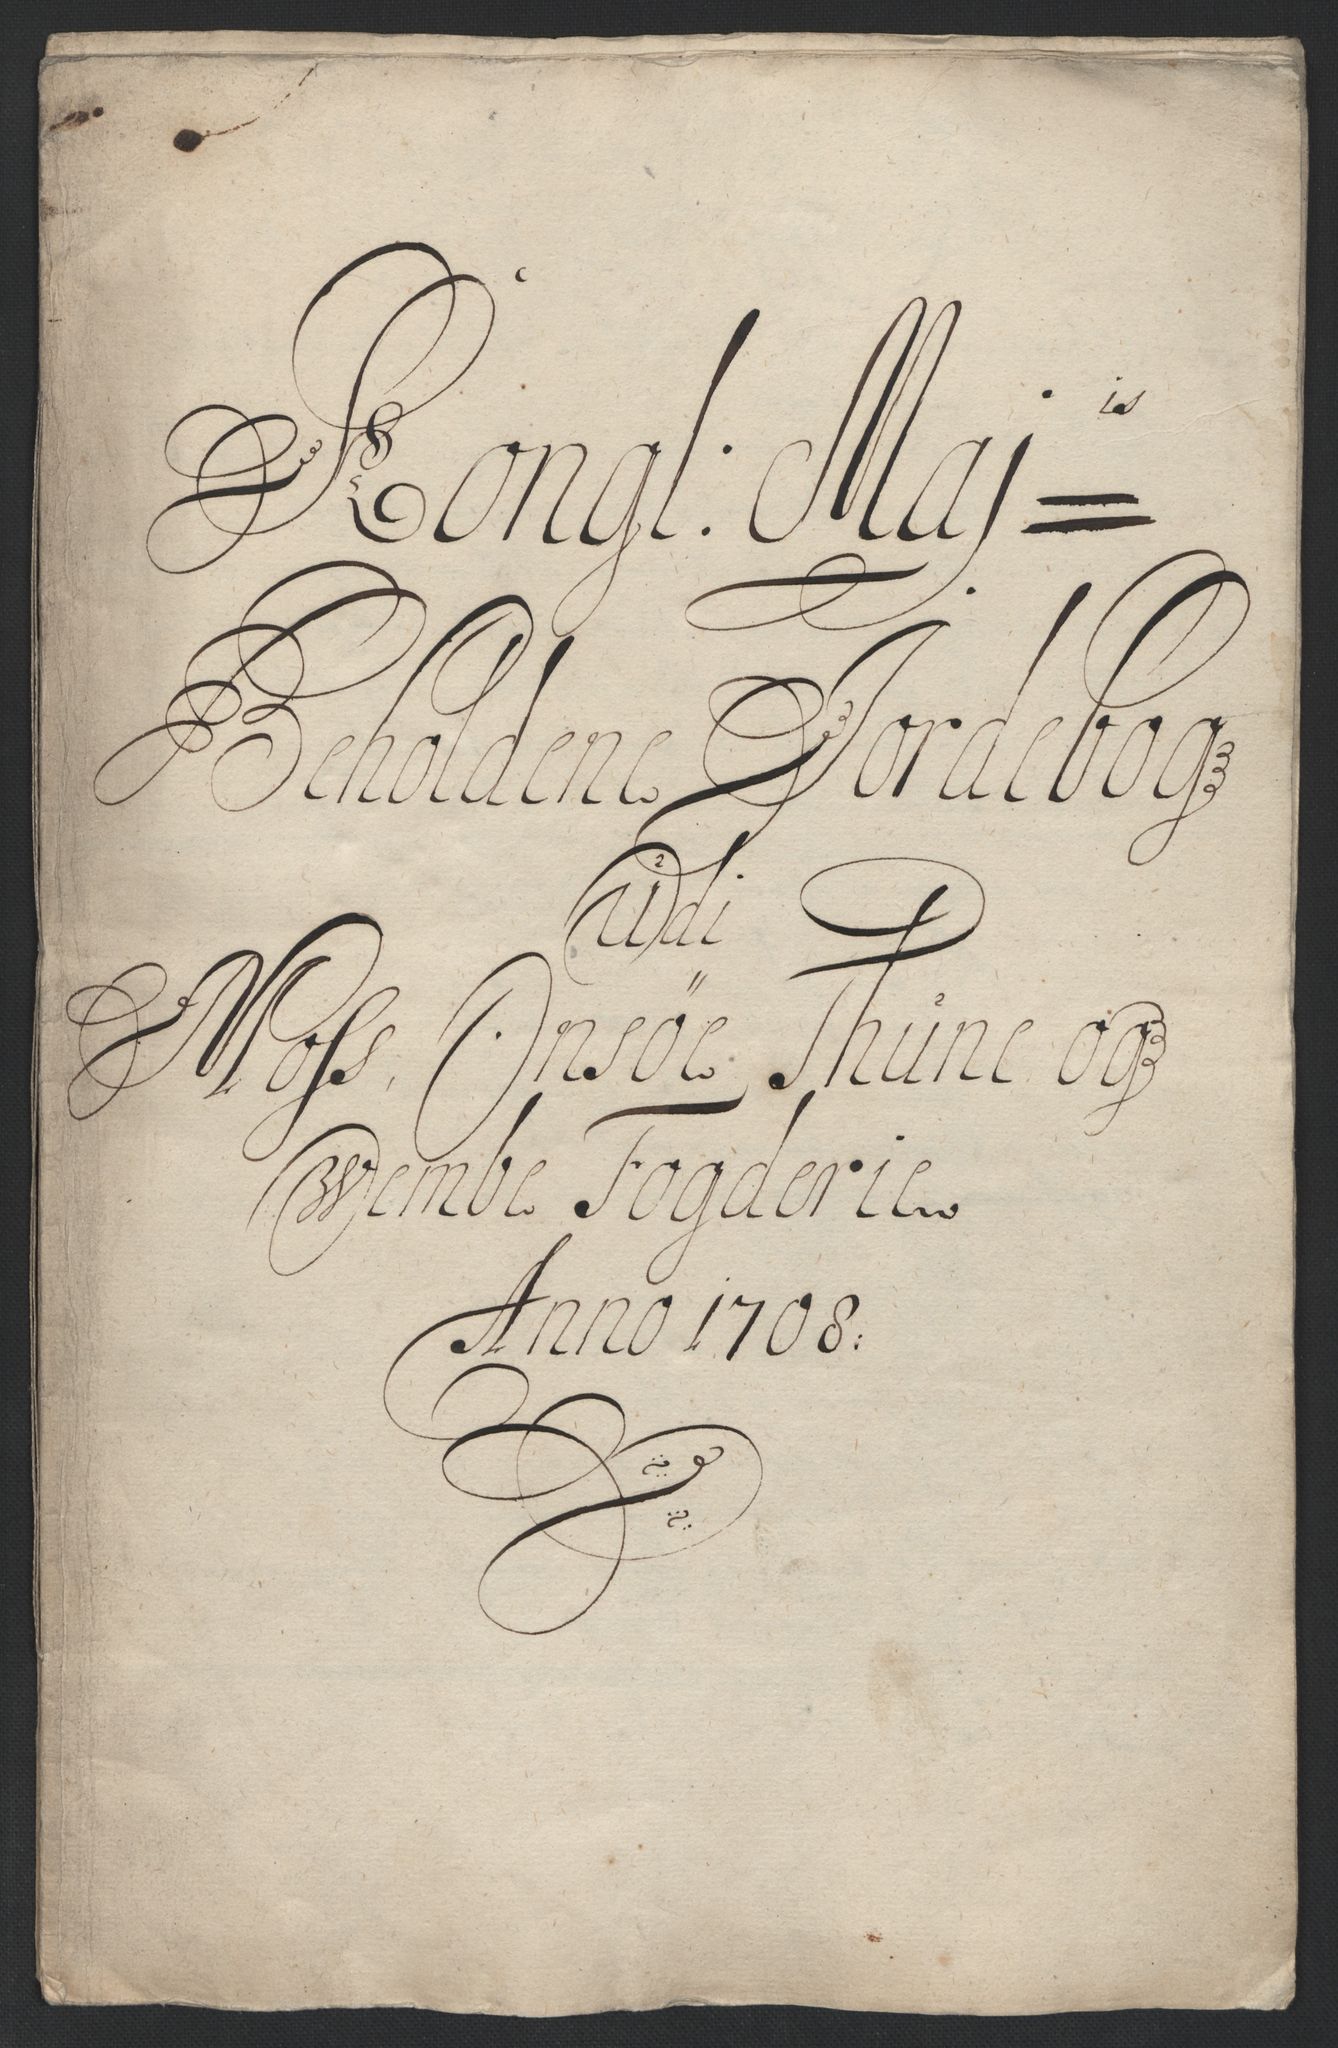 Kongl: Maj is
Beholdene Jordebog
Udi
Moss, Onsöe Thune og
Wembe Fogderie
Anno 1708: